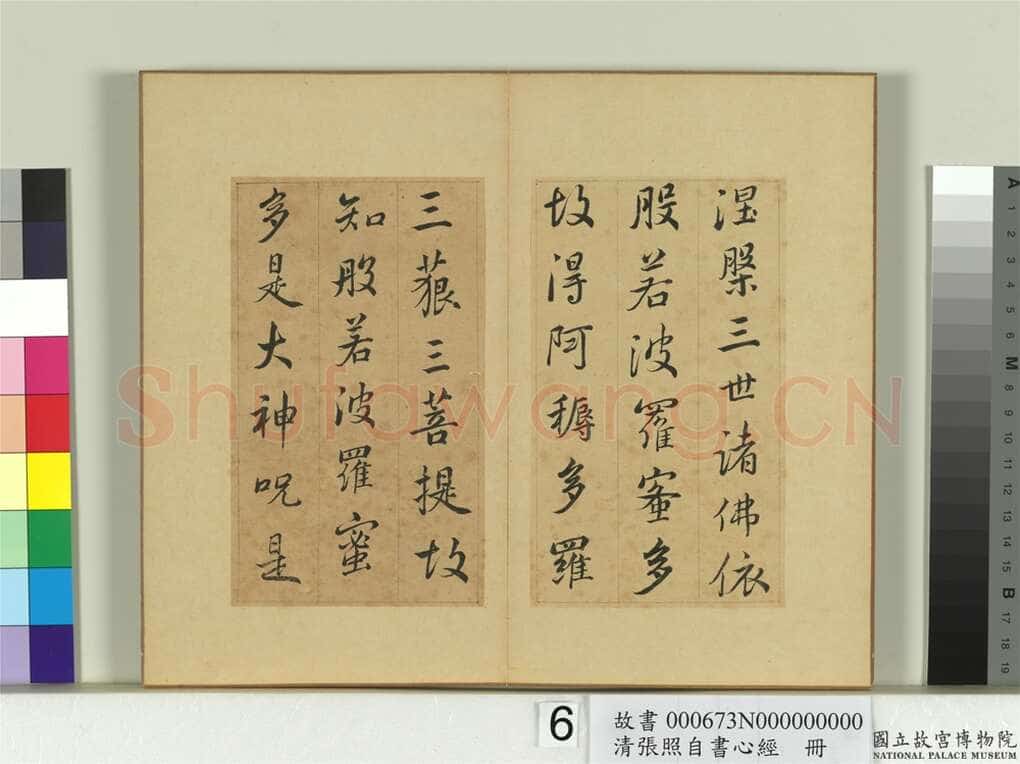 涅槃三世諸佛依
般若波羅蜜多
故得阿耨多羅
三藐三菩提故
知般若波羅蜜
多是大神呪是
Shufawang.CN
6
故書 000673N000000000
清張照自書心經 冊
國立故宮博物院
NATIONAL PALACE MUSEUM
A
1
2
3
4
5
6
M
8
9
10
11
12
13
14
15
B
17
18
19